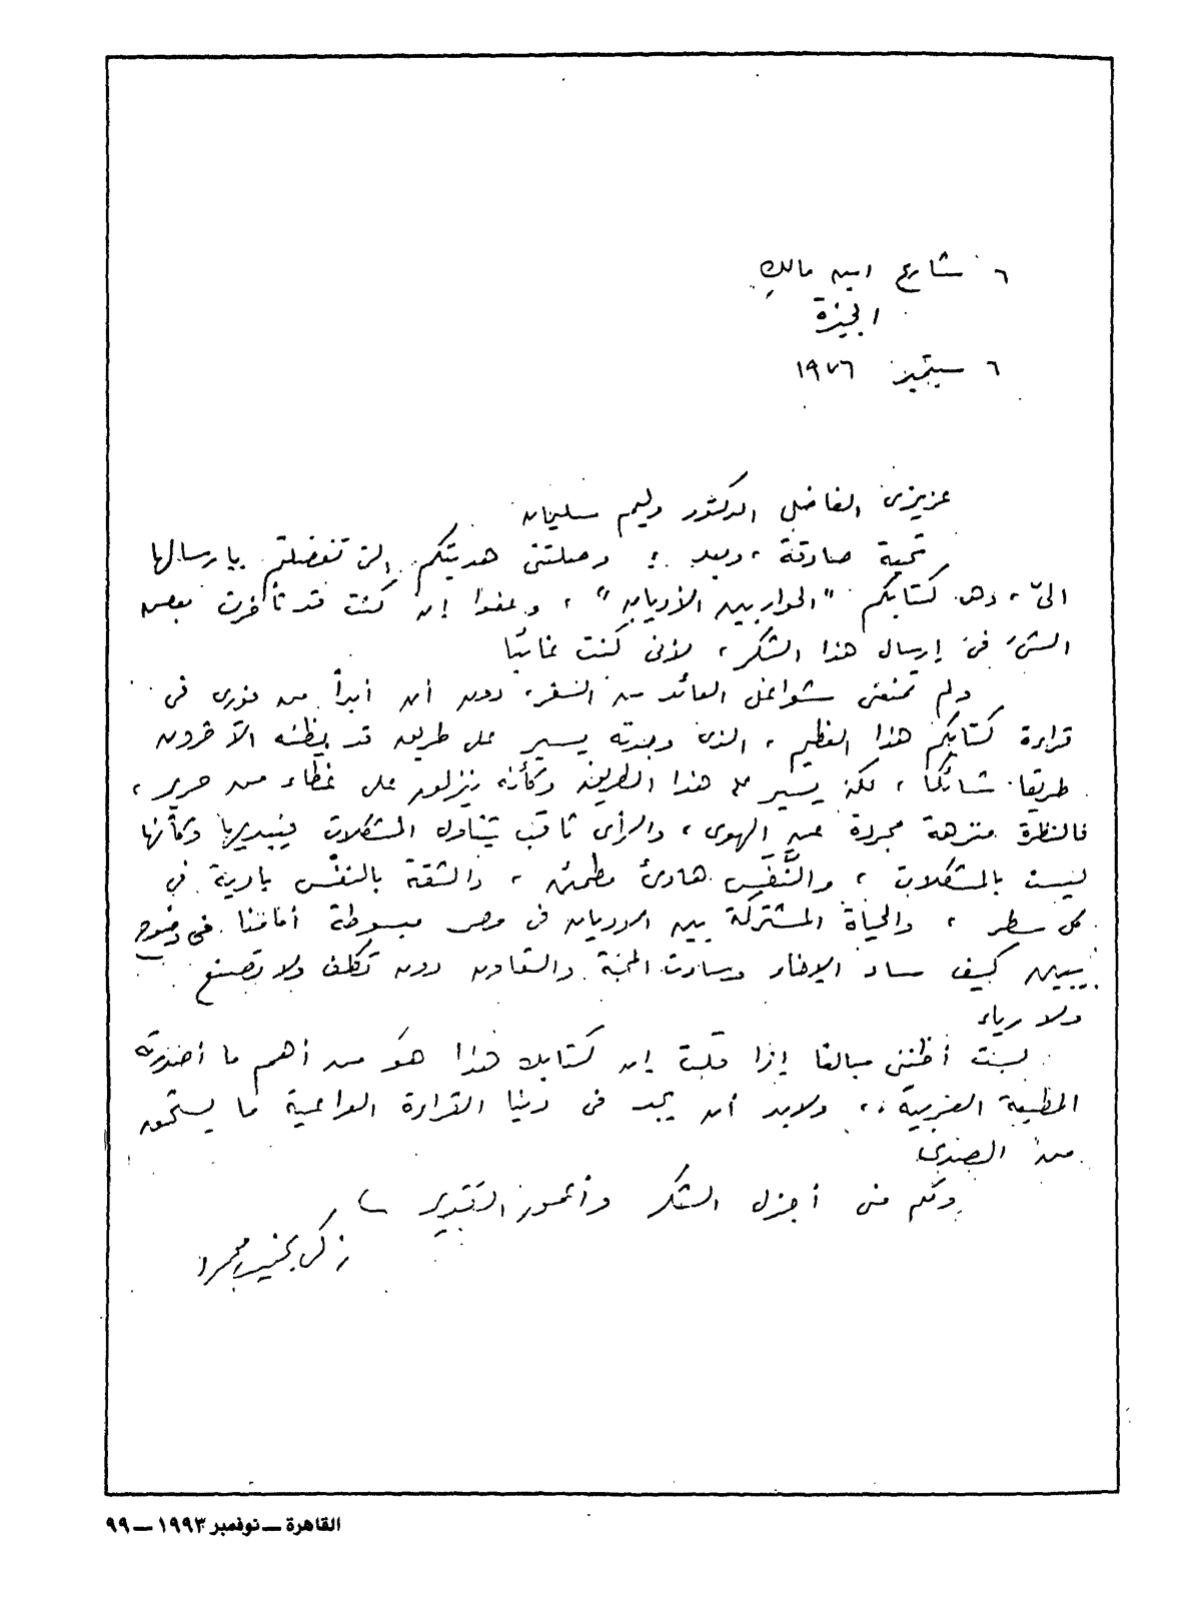 ٦ شارع ابن مالك
الجيزة
٦ سبتمبر ١٩٧٦
عزيزى الفاضل الدكتور وليم سليمان
تحية صادقة، وبعد: وصلتنى هديتكم التى تفضلتم بإرسالها
الىّ، وهى كتابكم "الحوار بين الأديان"، وعفوا إن كنت قد تأخرت بعض
الشئ فى إرسال هذا الشكر، لأنى كنت غائبًا
ولم تمنعنى شواغل العائد من السفر، دون أن أبدأ من فورى فى
قراءة كتابكم هذا العظيم، الذى وجدته يسير على طريق قد يظنه الآخرون
طريقا شائكا، لكنه يسير على هذا الطريق وكأنه ينزلق على غطاء من حرير،
فالنظرة منزهة مجردة عن الهوى، والرأى ثاقب يتناول المشكلات فيبديها وكأنها
ليست بالمشكلات، والنَّفَس هادئ مطمئن، والثقة بالنفس بادية فى
كل سطر، والحياة المشتركة بين الاديان فى مصر مبسوطة أمامنا فى وضوح
يبين كيف ساد الإخاء وسادت المحبة والتعاون دون تكلف ولا تصنع
ولا رياء
لست أظننى مبالغا إذا قلت إن كتابك هذا هو من أهم ما أصدرته
المطبعة العربية.. ولابد أن يجد فى دنيا القراءة الواعية ما يستحق
من الصدى
ولكم منى أجزل الشكر وأعمق التقدير
زكى نجيب محمود
القاهرة ــ نوفمبر ١٩٩٣ ــ ٩٩